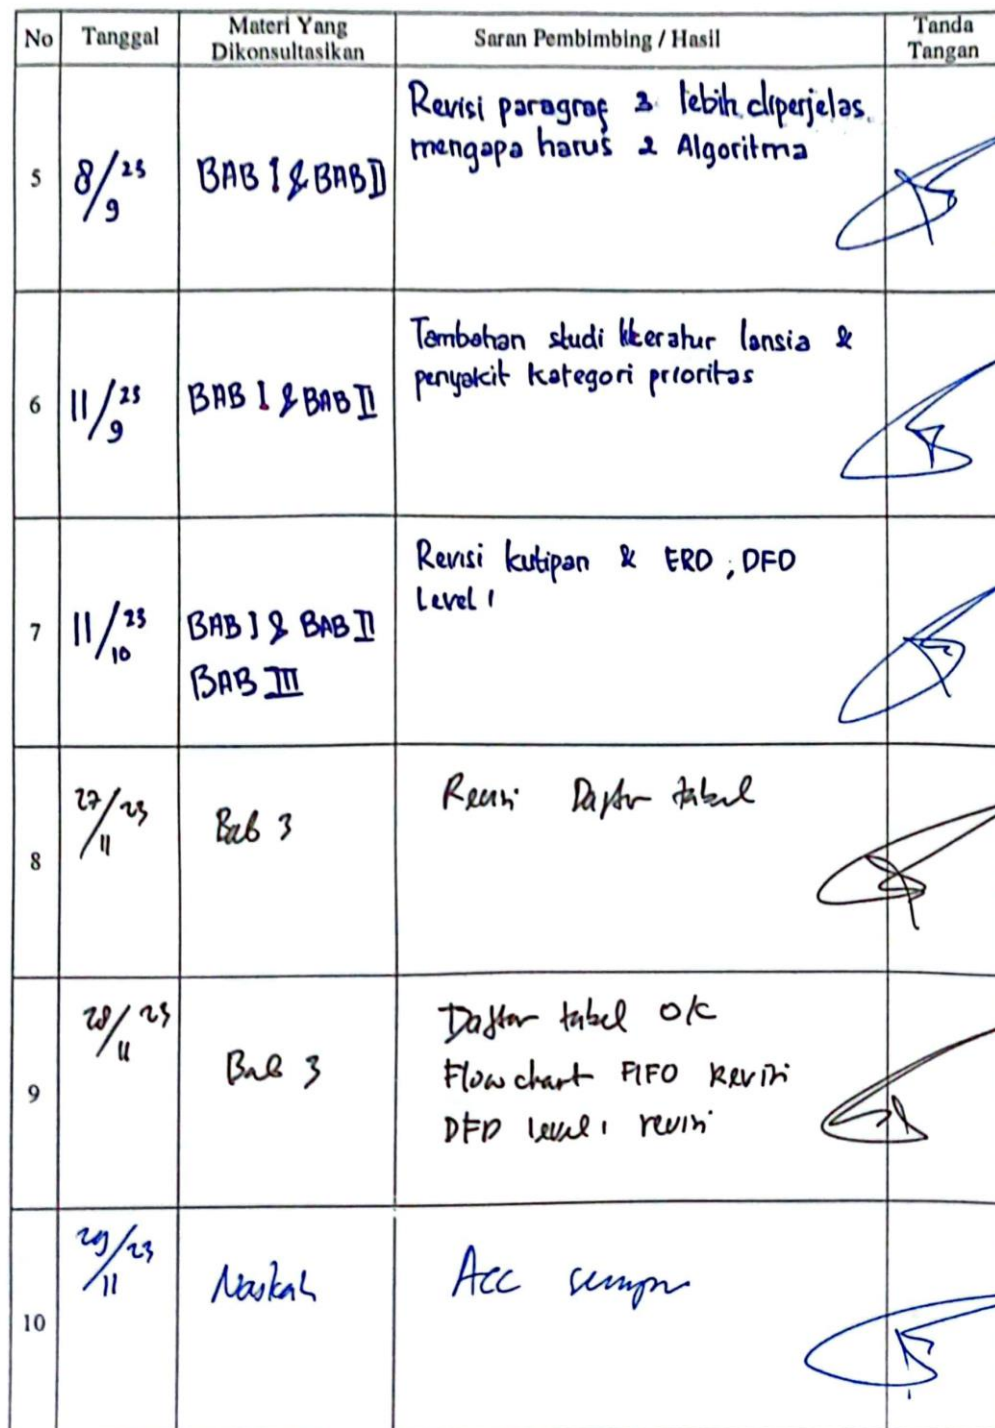 No Tanggal Materi Yang Dikonsultasikan Saran Pembimbing / Hasil Tanda Tangan
5 8/9 23 BAB I & BAB II Revisi paragraf 3 lebih diperjelas
mengapa harus 2 Algoritma
6 11/9 23 BAB I & BAB II Tambahan studi literatur lansia &
penyakit kategori prioritas
7 11/10 23 BAB I & BAB II Revisi kutipan & ERD, DFD
BAB III Level 1
8 27/11 23 Bab 3 Revisi Daftar tabel
9 28/11 23 Bab 3 Daftar tabel OK
Flowchart FIFO Revisi
DFD level 1 revisi
10 29/11 23 Naskah Acc